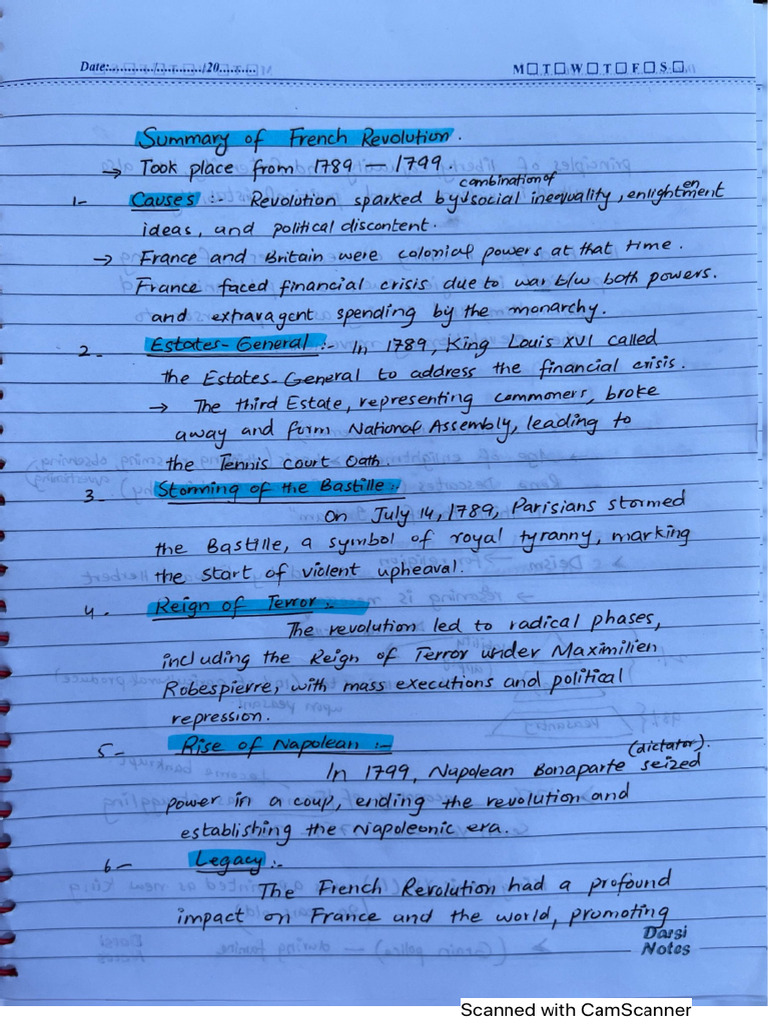 Date:............/............/20..........
M T W T F S
Summary of French Revolution.
→ Took place from 1789 — 1799.
combination of
1- Causes :- Revolution sparked by social inequality, enlightenment
ideas, and political discontent.
→ France and Britain were colonial powers at that time.
France faced financial crisis due to war b/w both powers.
and extravagent spending by the monarchy.
2- Estates-General :- In 1789, King Louis XVI called
the Estates-General to address the financial crisis.
→ The third Estate, representing commoners, broke
away and form National Assembly, leading to
the Tennis court Oath.
3- Storming of the Bastille :-
On July 14, 1789, Parisians stormed
the Bastille, a symbol of royal tyranny, marking
the start of violent upheaval.
4- Reign of Terror :-
The revolution led to radical phases,
including the Reign of Terror under Maximilien
Robespierre, with mass executions and political
repression.
5- Rise of Napolean :-
(dictator).
In 1799, Napolean Bonaparte seized
power in a coup, ending the revolution and
establishing the Napoleonic era.
6- Legacy :-
The French Revolution had a profound
impact on France and the world, promoting
Darsi
Notes
Scanned with CamScanner